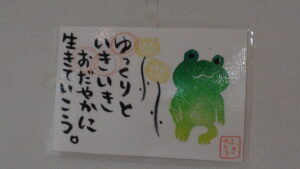 ゆっくりと
いきいき
おだやかに
生きていこう。